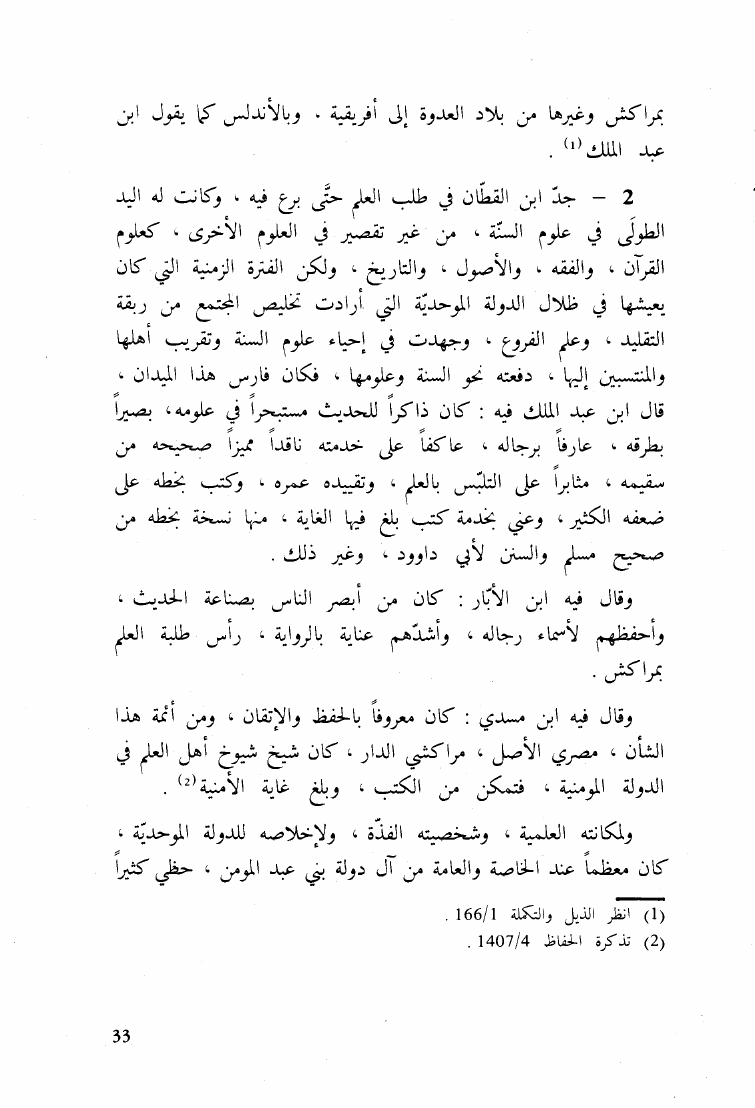 بمراكش وغيرها من بلاد العدوة إلى أفريقية . وبالأندلس كما يقول ابن
عبد الملك(1) .
2 – جدّ ابن القطّان في طلب العلم حتَّى برع فيه ، وكانت له اليد
الطولَى في علوم السنّة ، من غير تقصير في العلوم الأخرى ، كعلوم
القرآن ، والفقه ، والأصول ، والتاريخ ، ولكن الفترة الزمنية التي كان
يعيشها في ظلال الدولة الموحديّة التي أرادت تخليص المجتمع من ربقة
التقليد ، وعلم الفروع ، وجهدت في إحياء علوم السنة وتقريب أهلها
والمنتسبين إليها ، دفعته نحو السنة وعلومها ، فكان فارس هذا الميدان ،
قال ابن عبد الملك فيه : كان ذاكراً للحديث مستبحراً في علومه ، بصيراً
بطرقه ، عارفاً برجاله ، عاكفاً على خدمته ناقداً مميزاً صحيحه من
سقيمه ، مثابراً على التلبّس بالعلم ، وتقييده عمره ، وكتب بخطه على
ضعفه الكثير ، وعني بخدمة كتب بلغ فيها الغاية ، منها نسخة بخطه من
صحيح مسلم والسنن لأبي داوود ، وغير ذلك .
وقال فيه ابن الأبّار : كان من أبصر الناس بصناعة الحديث ،
وأحفظهم لأسماء رجاله ، وأشدّهم عناية بالرواية ، رأس طلبة العلم
بمراكش .
وقال فيه ابن مسدي : كان معروفاً بالحفظ والإتقان ، ومن أئمة هذا
الشأن ، مصري الأصل ، مراكشي الدار ، كان شيخ شيوخ أهل العلم في
الدولة المومنية ، فتمكن من الكتب ، وبلغ غاية الأمنية(2) .
ولمكانته العلمية ، وشخصيته الفذّة ، ولإخلاصه للدولة الموحديّة ،
كان معظماً عند الخاصة والعامة من آل دولة بني عبد المومن ، حظي كثيراً
(1) انظر الذيل والتكملة 166/1 .
(2) تذكرة الحفاظ 1407/4 .
33